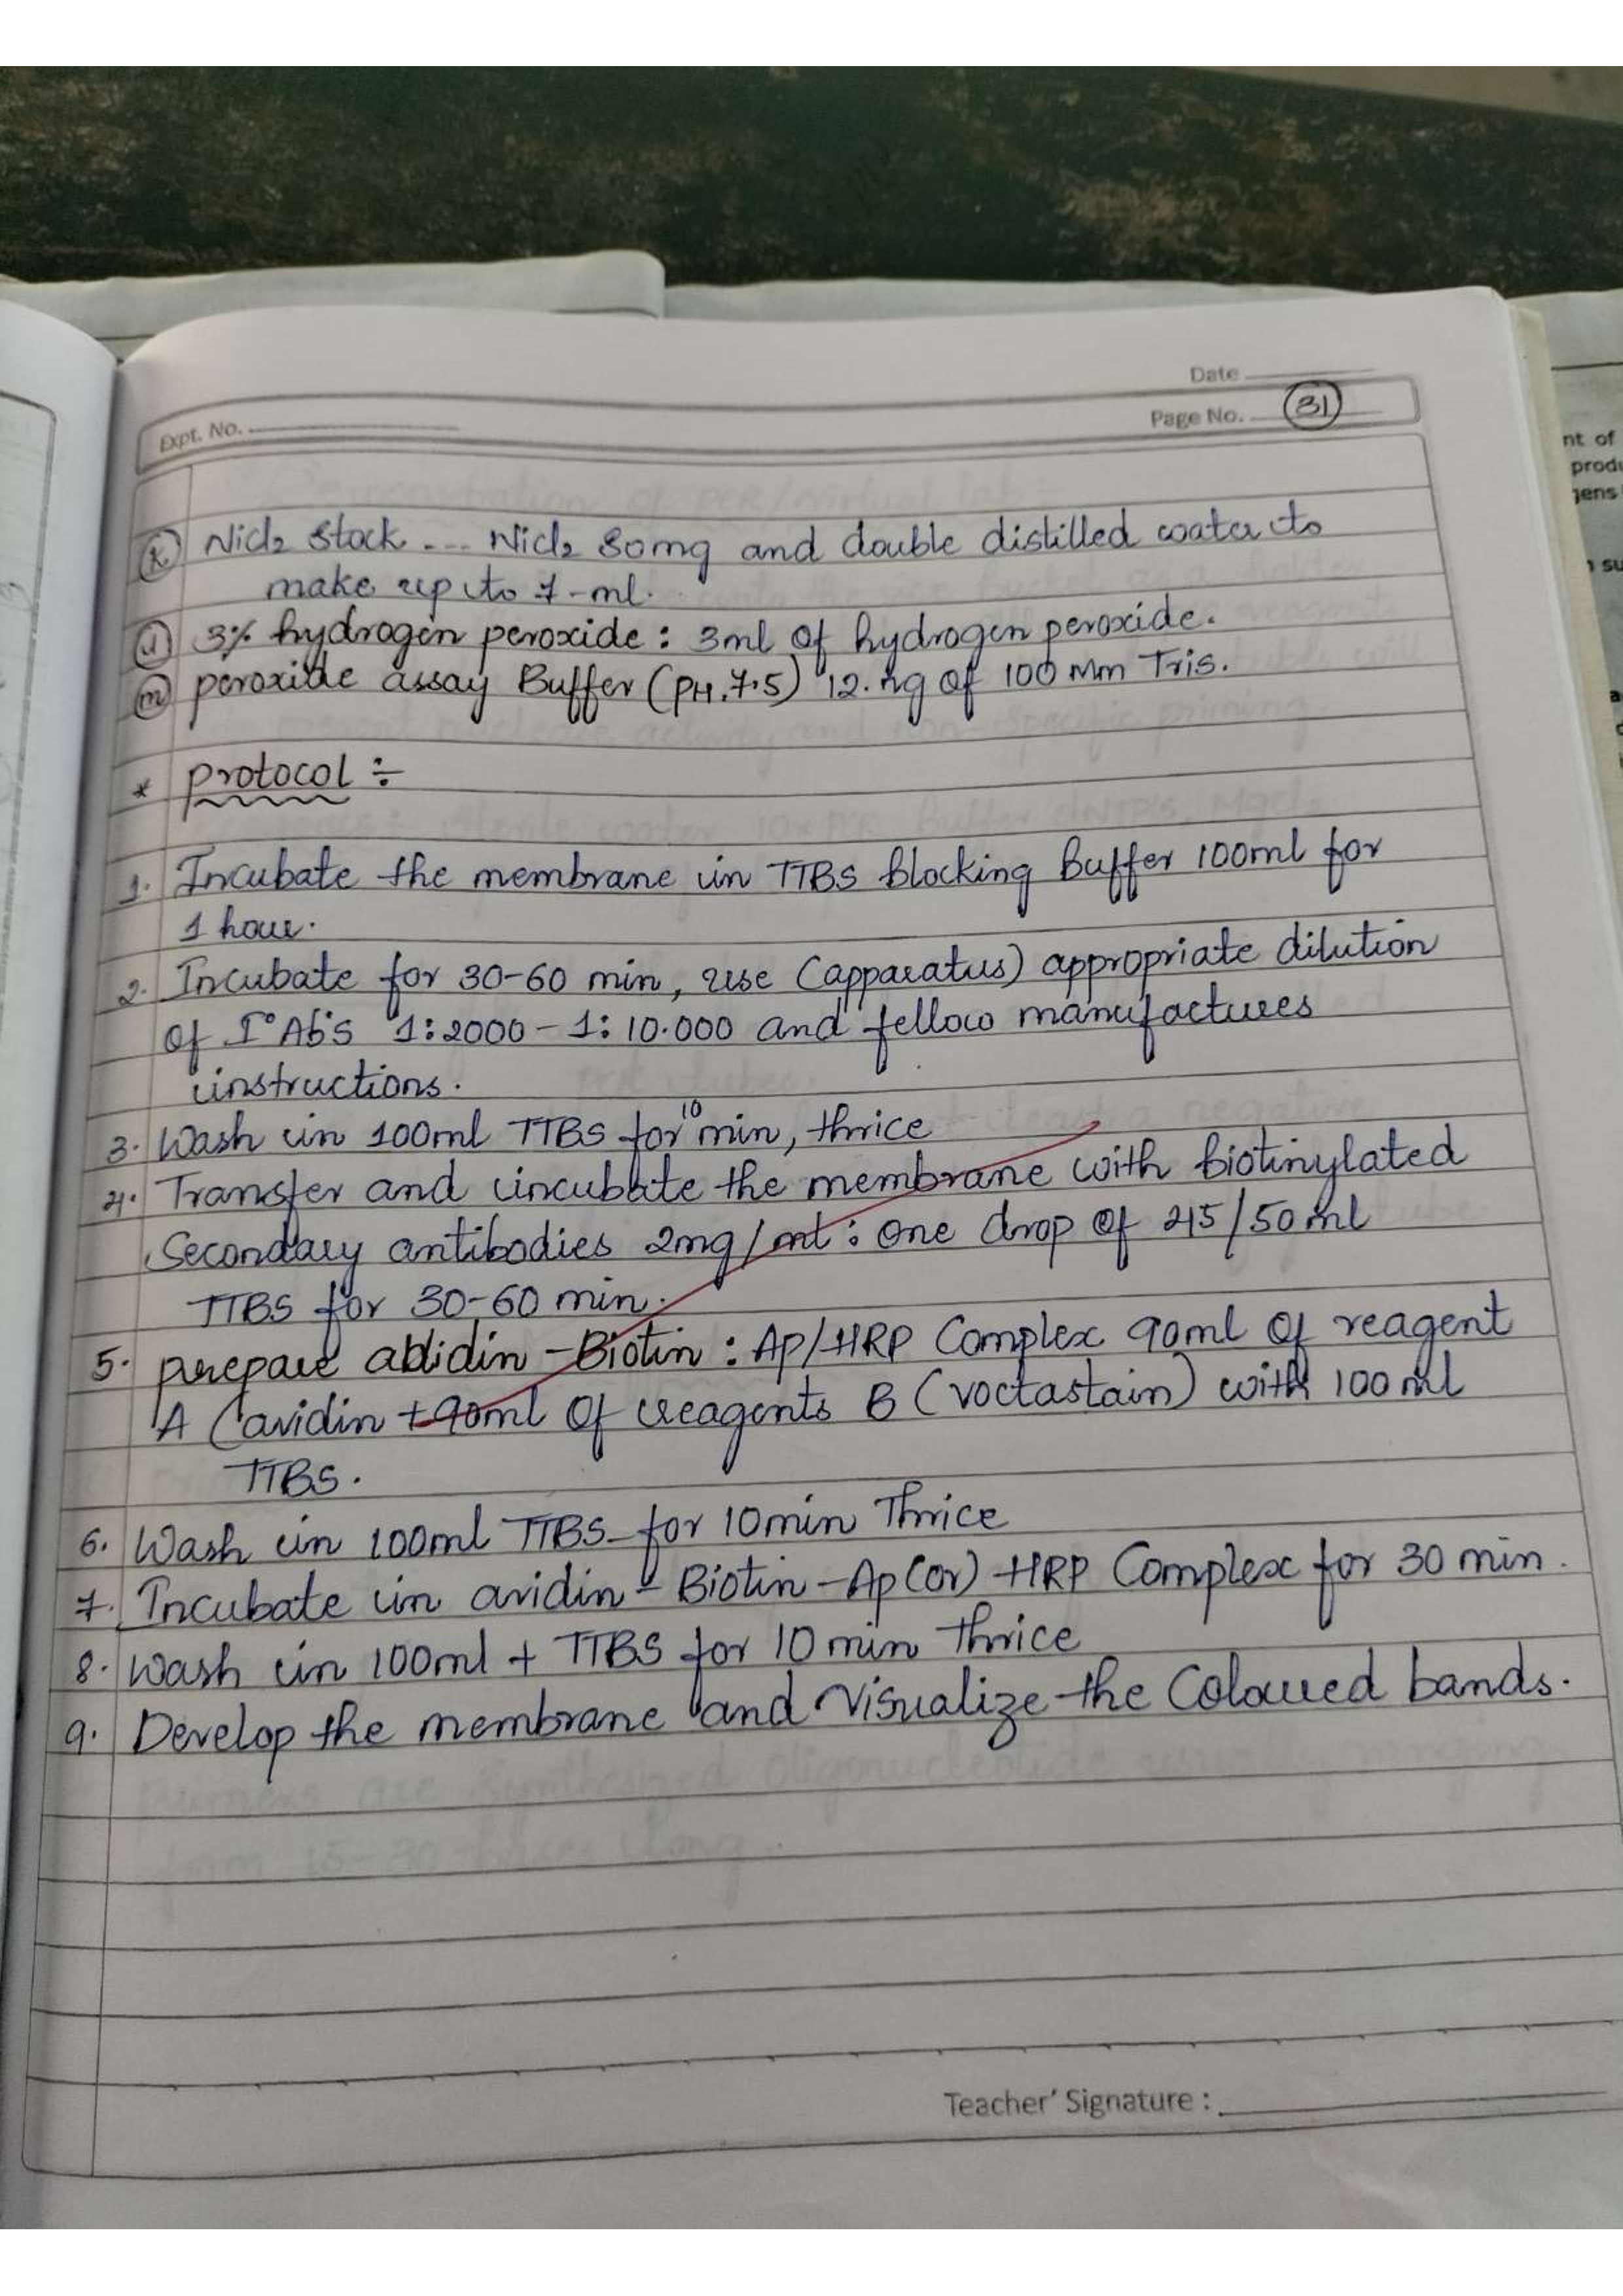 Date
Page No. 31
Expt. No.
(k) Nicl2 stock --- Nicl2 80mg and double distilled water to
make up to 7-ml.
(l) 3% hydrogen peroxide : 3ml of hydrogen peroxide.
(m) peroxide assay Buffer (PH.7.5) 12. ng of 100 Mm Tris.
* protocol ÷
1. Incubate the membrane in TTBS blocking Buffer 100ml for
1 hour.
2. Incubate for 30-60 min, use (apparatus) appropriate dilution
of I° Ab's 1:2000 - 1: 10.000 and fellow manufactures
instructions.
3. Wash in 100ml TTBS for 10 min, thrice
4. Transfer and incubate the membrane with biotinylated
Secondary antibodies 2mg/ml : one drop of 45/50 ml
TTBS for 30-60 min.
5. prepare abidin - Biotin : Ap/HRP Complex 90ml of reagent
A (avidin + 90ml of reagents B (voctastain) with 100 ml
TTBS.
6. Wash in 100ml TTBS for 10min Thrice
7. Incubate in avidin - Biotin - Ap (or) HRP Complex for 30 min.
8. Wash in 100ml + TTBS for 10 min thrice
9. Develop the membrane and Visualize the Coloured bands.
Teacher' Signature :
nt of
produ
gens